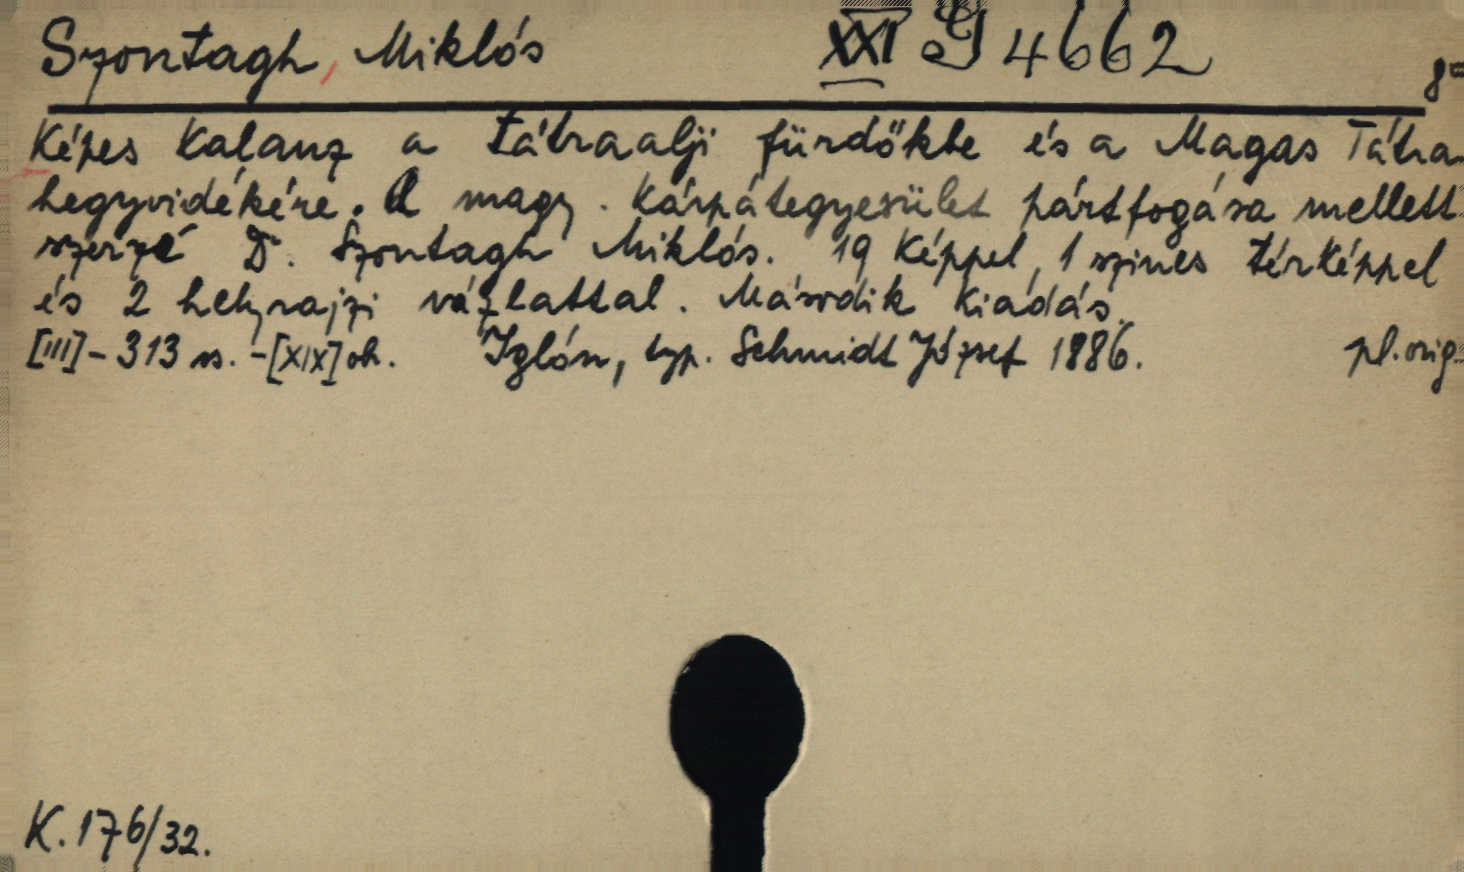 Szontagh, Miklós XXI G 4662 8°
Képes Kalauz a tátraalji fürdőkbe és a Magas Tátra
hegyvidékére. A magy. Kárpátegyesület pártfogása mellett
szerzé Dr. Szontagh Miklós. 19 Képpel, 1 szines térképpel
és 2 helyrajzi vázlattal. Második kiadás.
[III]-313 ss.-[XIX] oh. Iglón, typ. Schmidt József 1886. pl. orig.
K. 176/32.